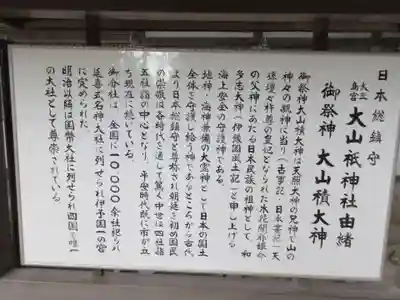 日本総鎮守
大三島宮 大山祇神社由緒
御祭神 大山積大神
御祭神大山積大神は天照大神の兄神で山の
神々の親神に当り(古事記・日本書記)天
孫瓊々杵尊の皇妃となられた木花開耶姫命
の父神にあたる日本民族の祖神として、和
多志大神(伊豫国風土記)と申し上げる
海上安全の守護神である
地神・海神兼備の大霊神として日本の国土
全体を守護し給う神であるところから古代
より日本総鎮守と尊称され朝廷を初め国民
の崇敬は各時代を通して篤く中世は四社詣
五社詣の中心となり、平安時代既に市が立
ち現在に続いている。
御分社は、全国に10,000余社祀られ
延喜式名神大社に列せられ伊予国一の宮
に定められた
明治以降は国幣大社に列せられ四国で唯一
の大社として尊崇されている。